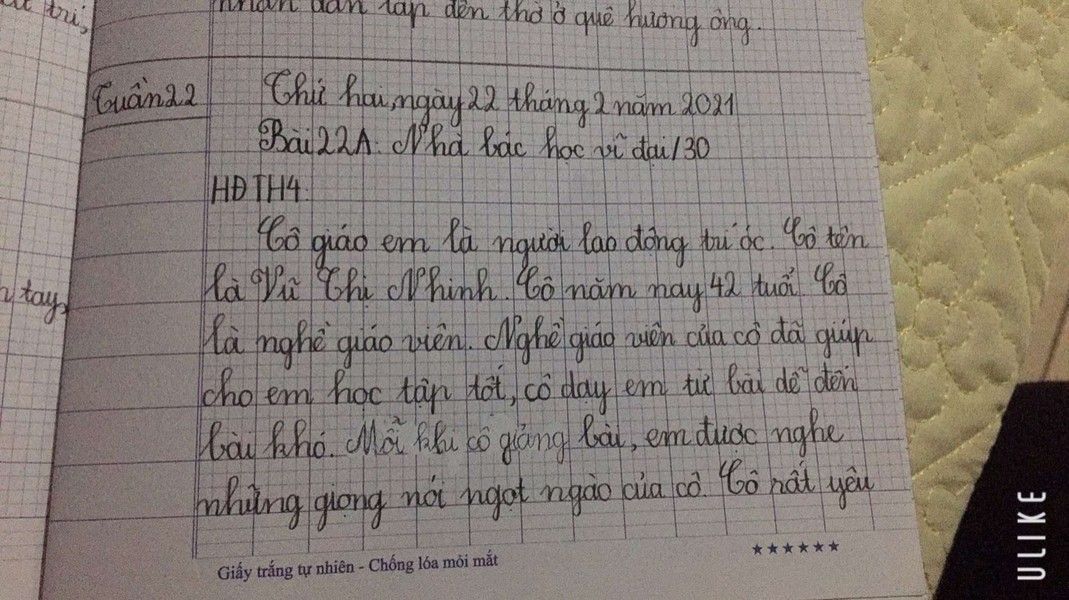 nhân dân lập đền thờ ở quê hương ông.
trí,
Tuần 22
Thứ hai, ngày 22 tháng 2 năm 2021
Bài 22A. Nhà bác học vĩ đại / 30
HĐTH4.
Cô giáo em là người lao động trí óc. Cô tên
là Vũ Thị Nhinh. Cô năm nay 42 tuổi. Cô
là nghề giáo viên. Nghề giáo viên của cô đã giúp
cho em học tập tốt, cô dạy em từ bài dễ đến
bài khó. Mỗi khi cô giảng bài, em được nghe
những giọng nói ngọt ngào của cô. Cô rất yêu
tay,
Giấy trắng tự nhiên - Chống lóa mỏi mắt
ULIKE